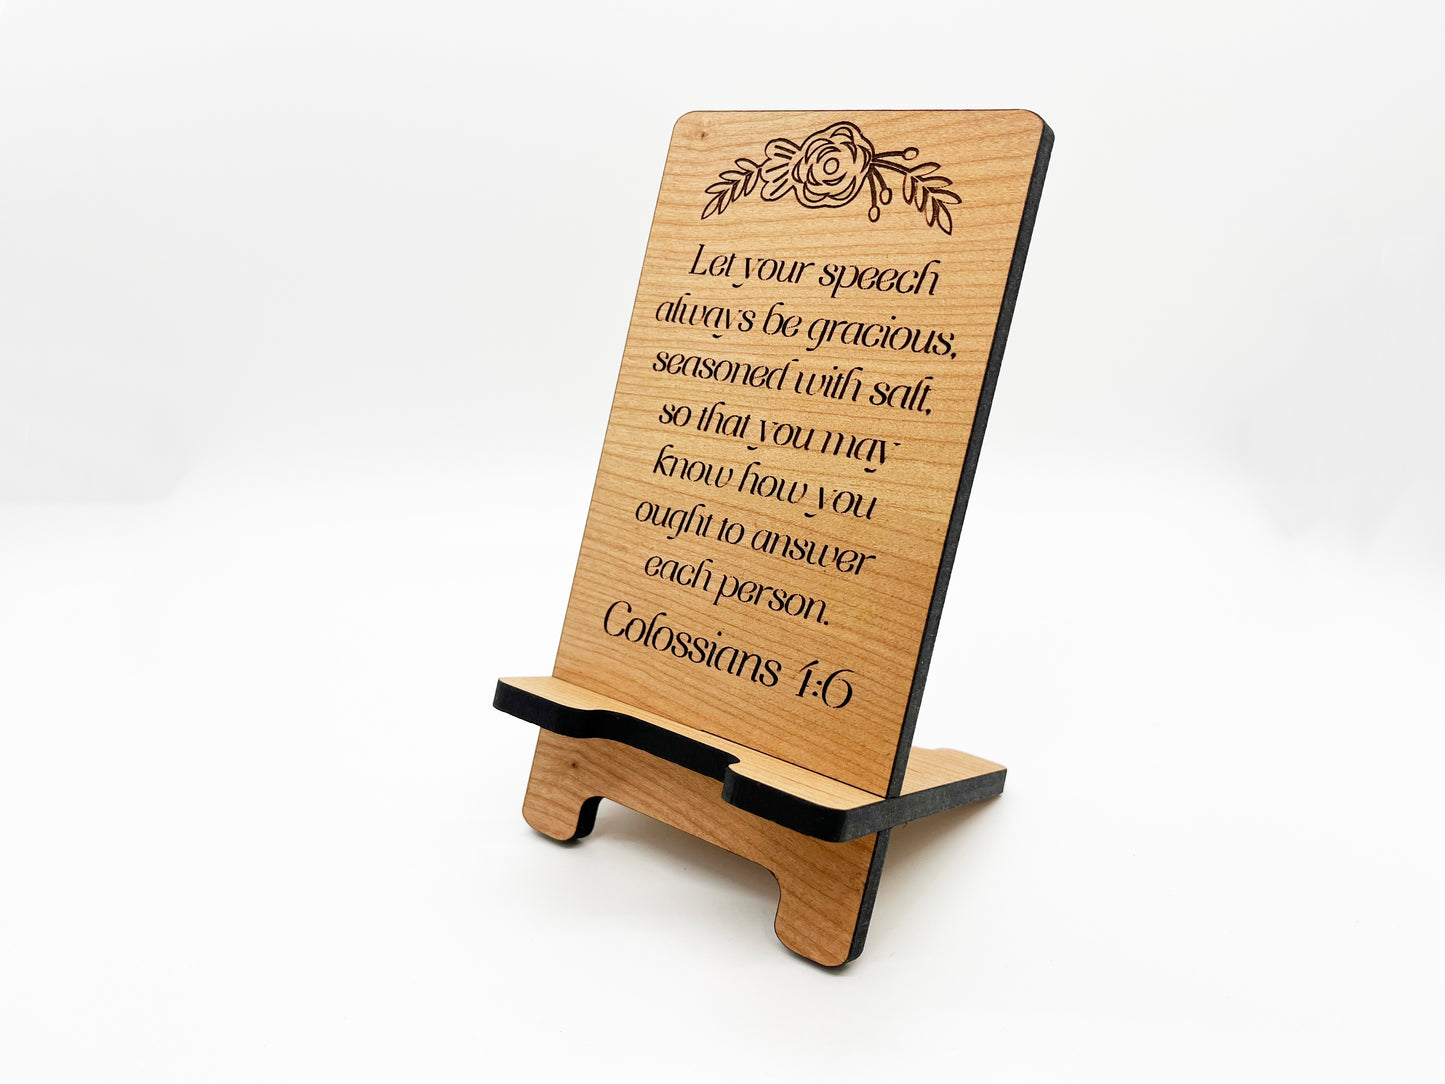 Let your speech
always be gracious,
seasoned with salt,
so that you may
know how you
ought to answer
each person.
Colossians 4:6